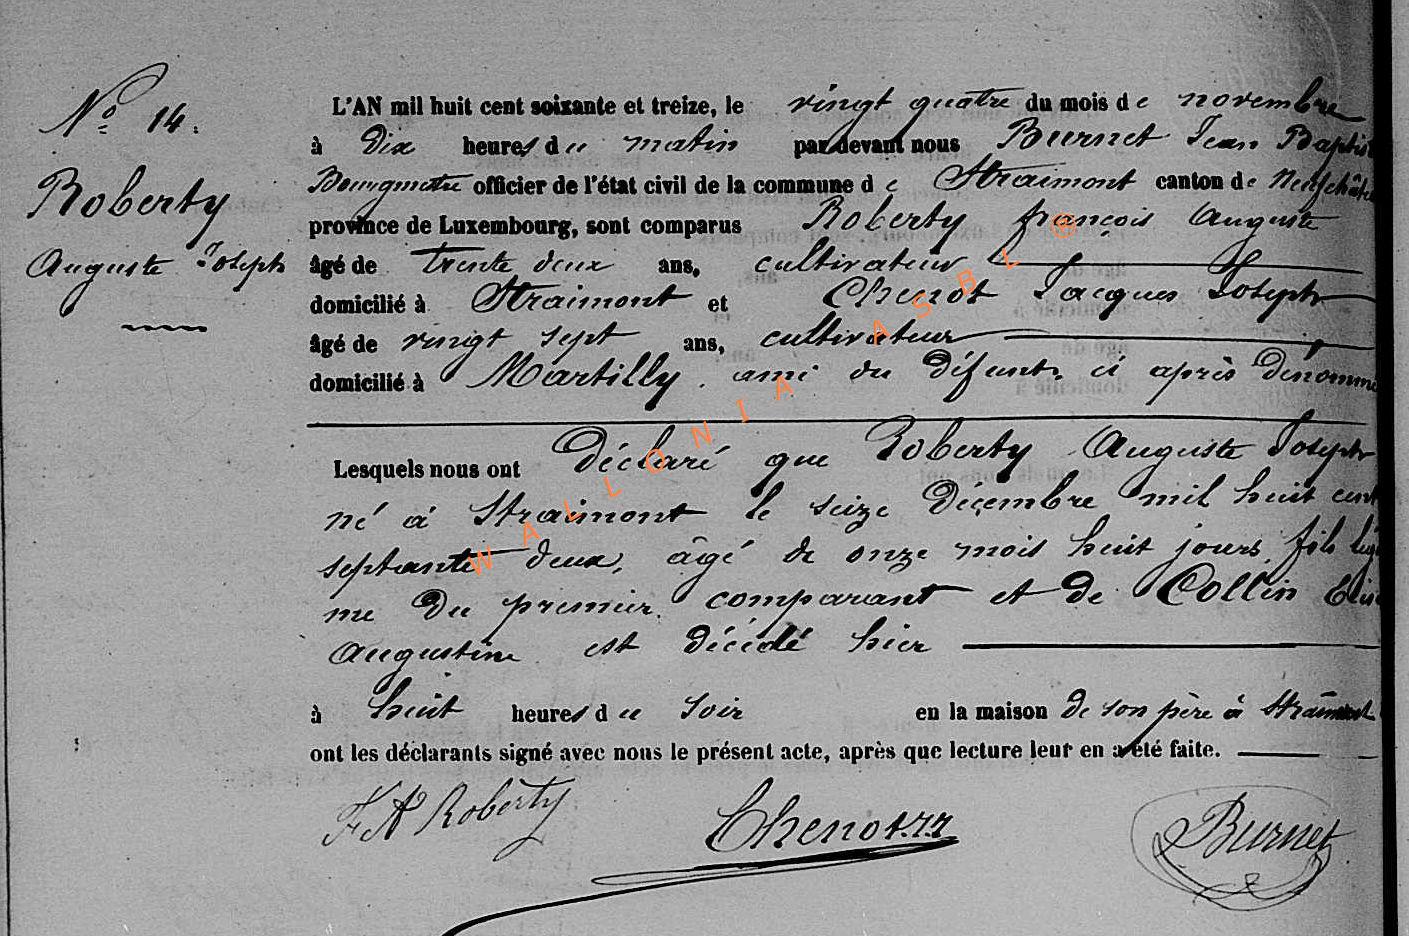 N° 14.
Roberty
Auguste Joseph
L'AN mil huit cent soixante et treize, le vingt quatre du mois de novembre
à dix heures du matin par devant nous Burnet Jean Baptis
Bourgmetre officier de l'état civil de la commune de Straimont canton de Neufchâte
province de Luxembourg, sont comparus Roberty françois Auguste
âgé de trente deux ans, cultivateur
domicilié à Straimont et Chenot Jacques Joseph
âgé de vingt sept ans, cultivateur
domicilié à Martilly. ami du défunt ci après dénommé
Lesquels nous ont déclaré que Roberty Auguste Joseph
né à Straimont le seize décembre mil huit cent
septante deux, âgé de onze mois huit jours, fils légi
me du premier comparant et de Collin Elis
Augustine est décédé hier
à huit heures du soir en la maison de son père à Straimont
ont les déclarants signé avec nous le présent acte, après que lecture leur en a été faite.
F A Roberty Chenot J J Burnet
WALLONIA ASBL ©